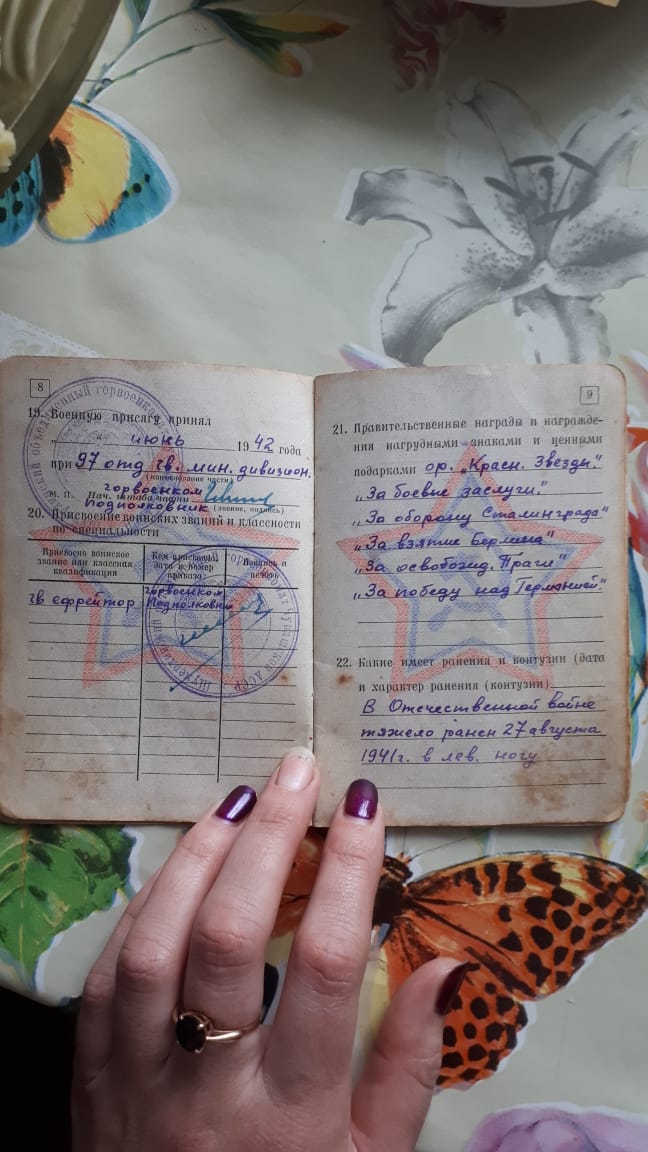 8
19. Военную присягу принял
" " июнь 1942 года
при 97 отд гв. мин. дивизион.
(наименование части)
горвоенком
М. П. Нач. штаба части
подполковник (звание, подпись)
20. Присвоение воинских званий и классности
по специальности
Присвоено воинское
звание или классная
квалификация
Кем присвоено,
дата и номер
приказа
Подпись и
печать
гв ефрейтор
горвоенком
Подполковник
9
21. Правительственные награды и награжде-
ния нагрудными знаками и ценными
подарками ор. „Красн. Звезды."
„За боевые заслуги."
„За оборону Сталинграда"
„За взятие Берлина"
„За освобожд. Праги"
„За победу над Германией."
22. Какие имеет ранения и контузии (дата
и характер ранения (контузии)
В Отечественной войне
тяжело ранен 27 августа
1941г. в лев. ногу